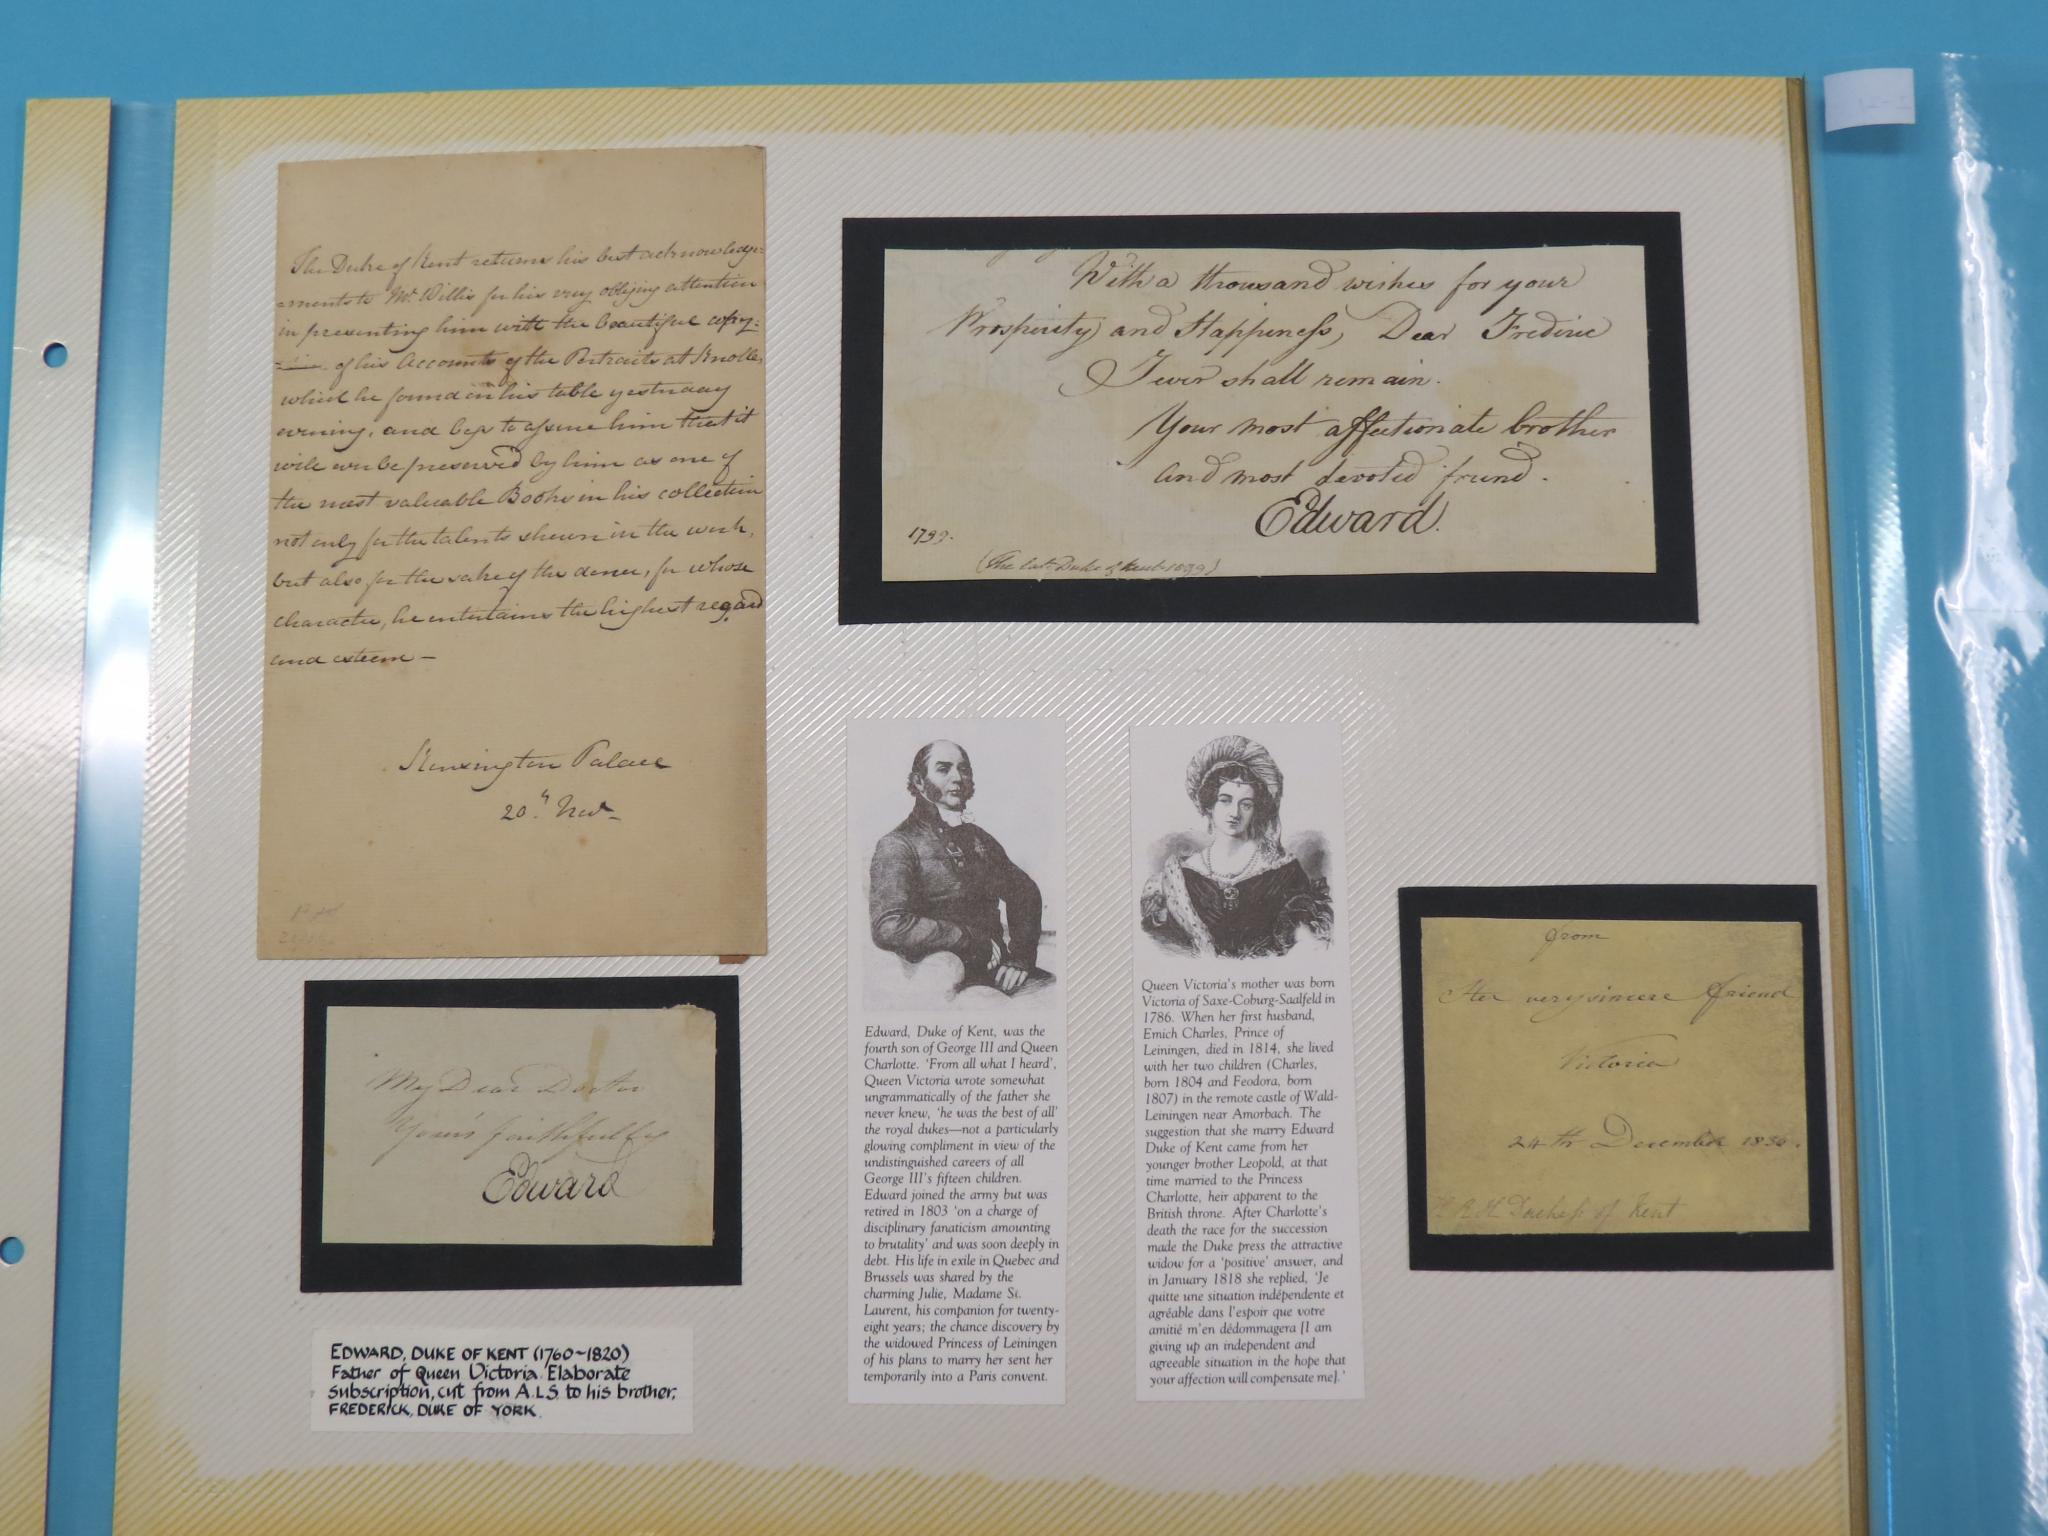 The Duke of Kent returns his best acknowledge=
=ments to Mr. Willis for his very obliging attention
in presenting him with the beautiful copy=
of his Accounts of the Portraits at Knolle,
which he found on his table yesterday
evening, and begs to assure him that it
will ever be preserved by him as one of
the most valuable Books in his collection
not only for the talents shewn in the work,
but also for the sake of the donor, for whose
character, he entertains the highest regard
and esteem —
Kensington Palace
20th. Nov.
With a thousand wishes for your
Prosperity and Happiness, Dear Frederic
I ever shall remain.
Your most affectionate brother
and most devoted friend.
Edward.
1799.
(The late Duke of Kent
My Dear Doctor
Yours faithfully
Edward
EDWARD, DUKE OF KENT (1760~1820)
Father of Queen Victoria. Elaborate
subscription, cut from A.L.S. to his brother,
FREDERICK, DUKE OF YORK.
Edward, Duke of Kent, was the
fourth son of George III and Queen
Charlotte. 'From all what I heard',
Queen Victoria wrote somewhat
ungrammatically of the father she
never knew, 'he was the best of all'
the royal dukes—not a particularly
glowing compliment in view of the
undistinguished careers of all
George III's fifteen children.
Edward joined the army but was
retired in 1803 'on a charge of
disciplinary fanaticism amounting
to brutality' and was soon deeply in
debt. His life in exile in Quebec and
Brussels was shared by the
charming Julie, Madame St.
Laurent, his companion for twenty-
eight years; the chance discovery by
the widowed Princess of Leiningen
of his plans to marry her sent her
temporarily into a Paris convent.
Queen Victoria's mother was born
Victoria of Saxe-Coburg-Saalfeld in
1786. When her first husband,
Emich Charles, Prince of
Leiningen, died in 1814, she lived
with her two children (Charles,
born 1804 and Feodora, born
1807) in the remote castle of Wald-
Leiningen near Amorbach. The
suggestion that she marry Edward
Duke of Kent came from her
younger brother Leopold, at that
time married to the Princess
Charlotte, heir apparent to the
British throne. After Charlotte's
death the race for the succession
made the Duke press the attractive
widow for a 'positive' answer, and
in January 1818 she replied, 'Je
quitte une situation indépendente et
agréable dans l'espoir que votre
amitié m'en dédommagera [I am
giving up an independent and
agreeable situation in the hope that
your affection will compensate me].'
from
Her very sincere friend
Victoria
24th December 1836.
H.R.H Duchess of Kent